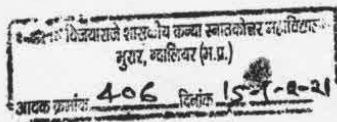 विजयाराजे शासकीय कन्या स्नातकोत्तर महाविद्यालय
मुरार, ग्वालियर (म.प्र.)
आवक क्रमांक 406 दिनांक